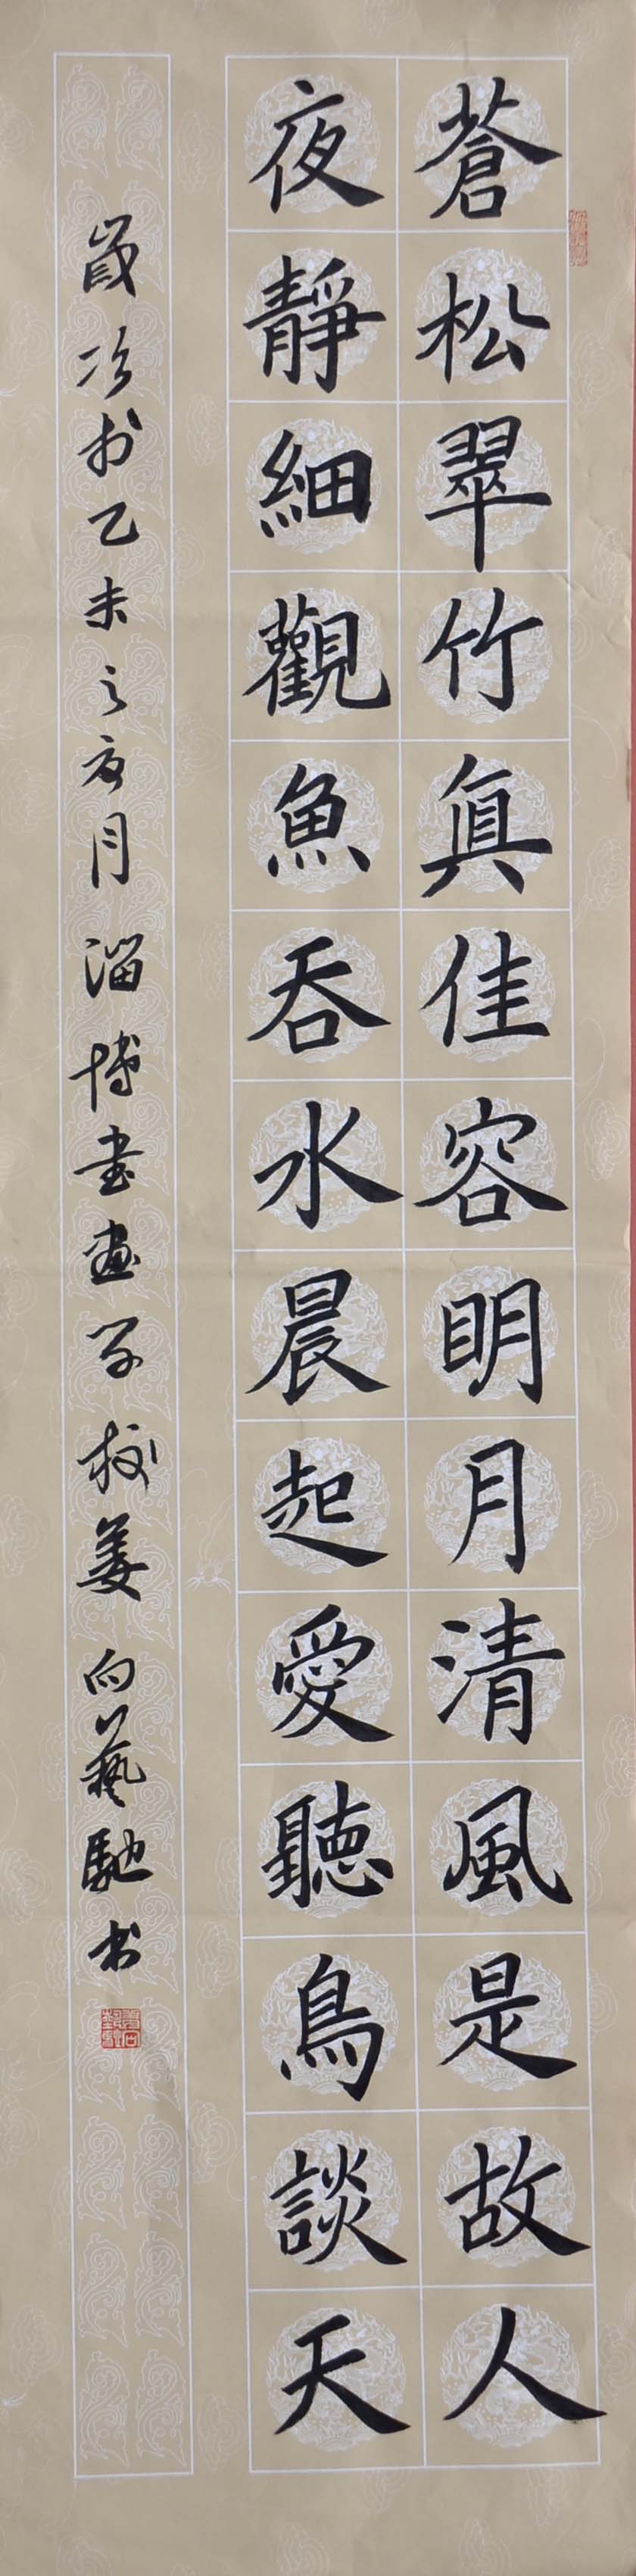 蒼松翠竹真佳容明月清風是故人
夜靜細觀魚吞水晨起愛聽鳥談天
歲次於乙未之夏月淄博書畫學校姜向藝馳书